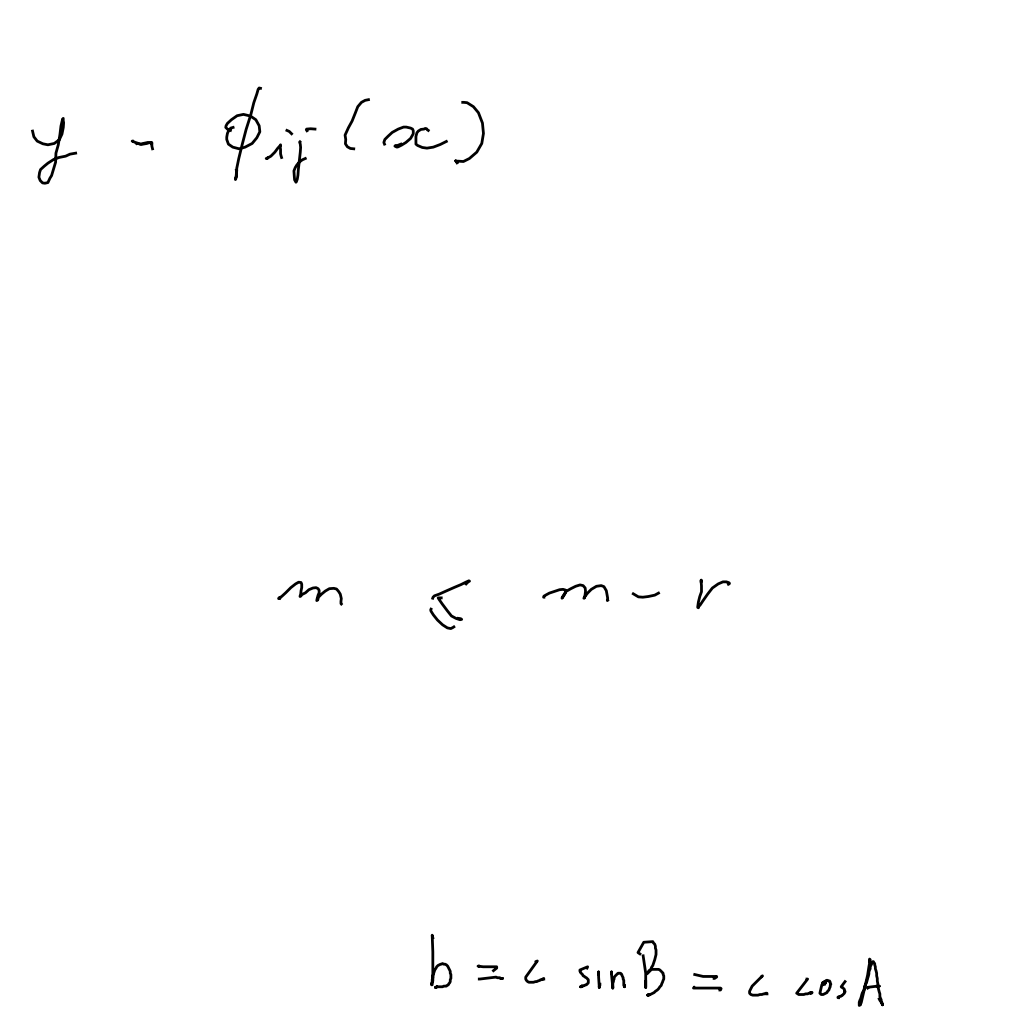 y - ϕ_{ij}(x)
m ⩽ m - r
b = c sin B = c cos A